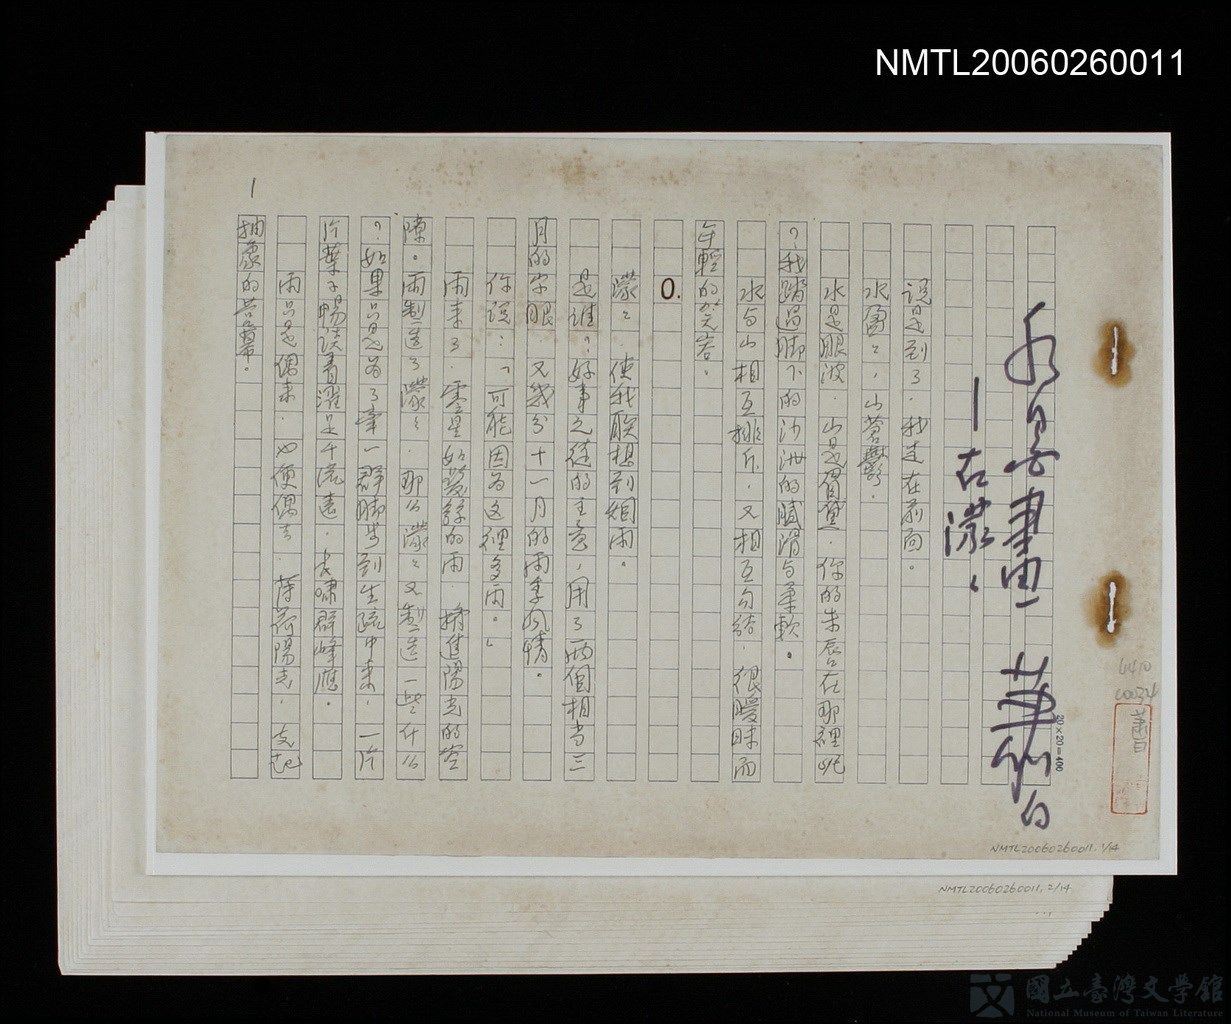 NMTL20060260011
水墨畫 蕭白
—在濛々
說是到了.我走在前面。
水盈々,山蒼鬱.
水是眼波.山是眉黛.你的朱唇在那裡呢
?我踏過腳下的沙洲的膩滑与柔軟。
水与山相互排斥.又相互勾結.很曖昧而
年輕的笑容。
0.
濛々 使我联想到烟雨。
是谁?好事之徒的主意,用了兩個相当三
月的字眼.又幾分十一月的雨季风情。
你說:「可能因为这裡多雨。」
雨来了.零星如髮絲的雨.擠進陽光的空
隙。雨製造了濛々.那么濛々又製造一些什么
?如果只是为了牽一群脚步到生疏中来,一片
片葉子暢談青濯足千流遠.長嘯群峰應。
雨只是偶来.也便偶去.荷陽光,支起
抽象的苔幕。
1
20×20=400
6410
0034
蕭白
NMTL20060260011.1/14
NMTL20060260011.2/14
國立臺灣文學館
National Museum of Taiwan Literature